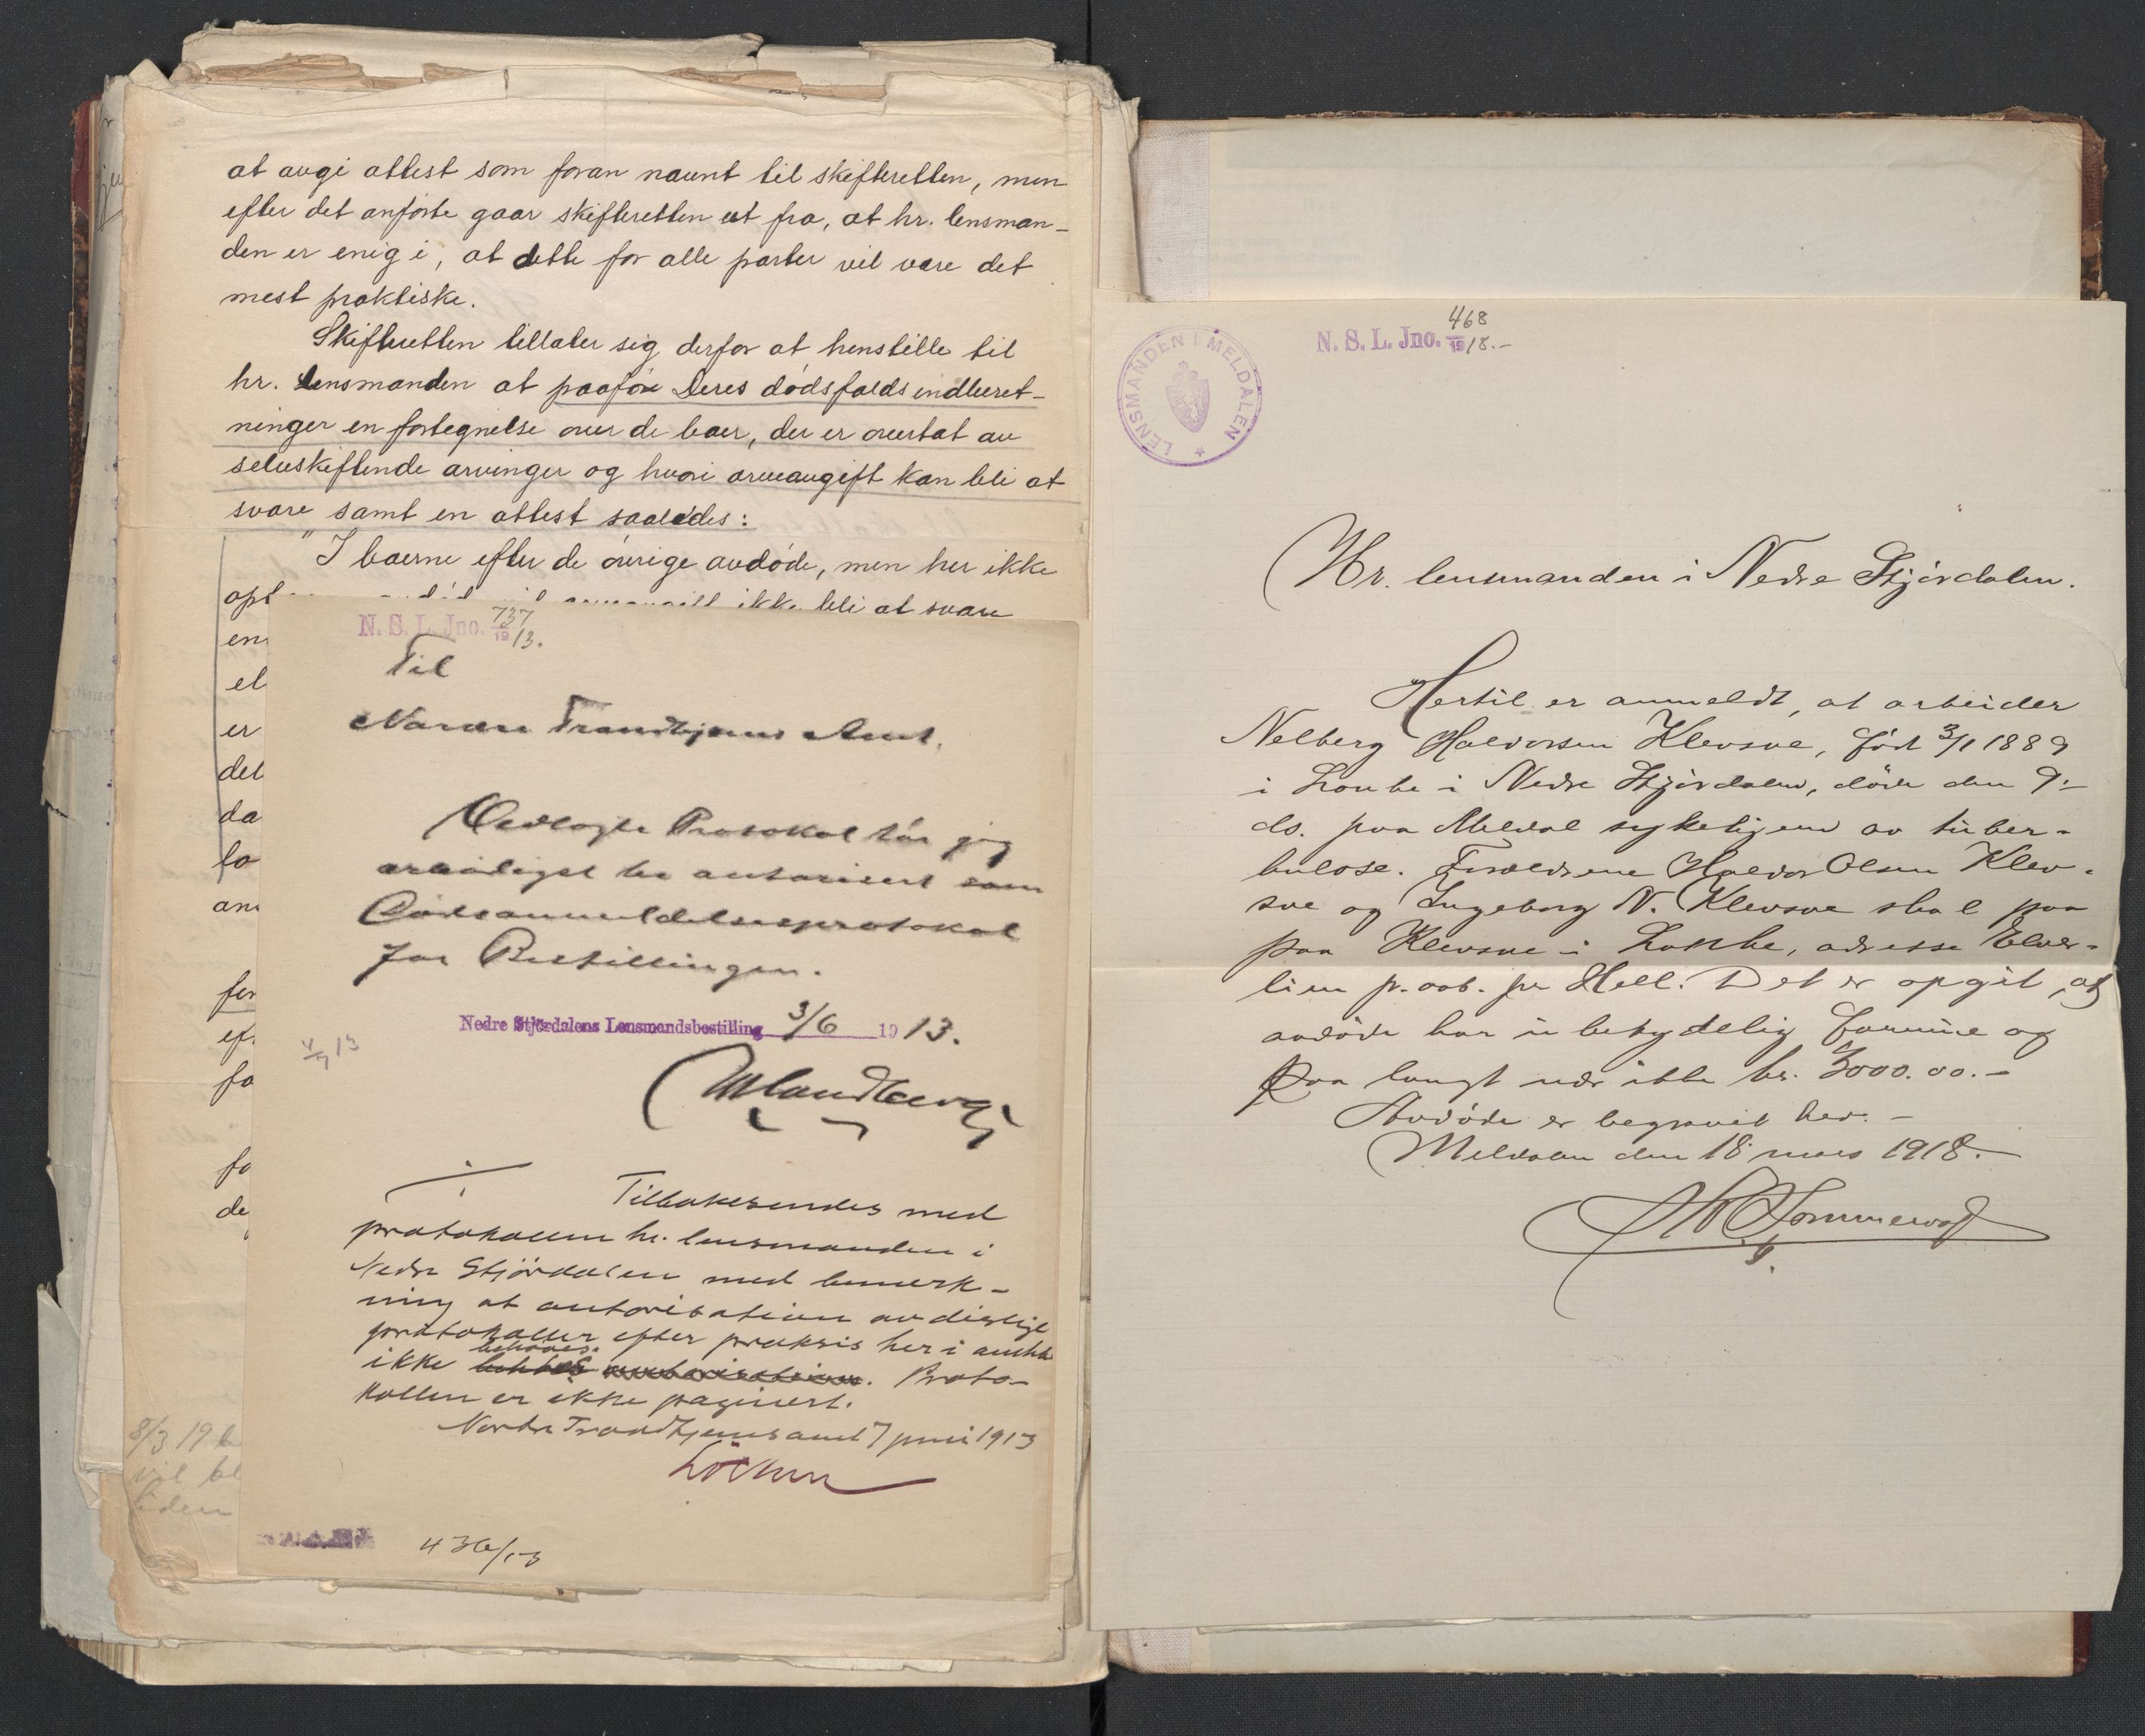 at avgi attest som foran nævnt til skifteretten, men
efter det anførte gaar skifteretten ut fra, at hr. lensman-
den er enig i, at dette for alle parter vil være det
mest praktiske.
Skifteretten tillater sig derfor at henstille til
hr. lensmanden at paaføre Deres dødsfaldsindberet-
ninger en fortegnelse over de boer, der er overtat av
selvskiftende arvinger og hvori arveavgift kan bli at
svare samt en attest saaledes:
"I boerne efter de øvrige avdøde, men her ikke
opt ikke bli at svare
en
el
er
det
da
fo
an
for
ef
fo
fo
de
8/3 19
vil bl
N. S. L. Jno. 737/1913.
Til
Nordre Trondhjems Amt.
Vedlagte Protokol tør jeg
ærbødigst be autoriseret som
Dødsanmeldelsesprotokol
for Bestillingen.
Nedre Stjørdalens Lensmandsbestilling 3/6 1913.
÷ Tilbakesendes med
protokollen hr. lensmanden i
Nedre Stjørdalen med bemerk-
ning at autorisation av dislige
protokoller efter praksis her i amtet
behøves.
ikke autorisation. Proto-
kollen er ikke paginert.
Nordre Trondhjems amt 7 juni 1913
Løchen
436/13
LENSMANDEN I MELDALEN
N. S. L. Jno. 468/1918.-
Hr. lensmanden i Nedre Stjørdalen.
Hertil er anmeldt, at arbeider
Nelberg Halvorsen Klevsve, født 3/1 1889
i Lonke i Nedre Stjørdalen, døde den 9:-
ds. paa Meldal sykehjem av tuber-
kulose. Forældrene Halvor Olsen Klev-
sve og Ingeborg N. Klevsve skal paa
paa Klevsve i Lonke, adresse Elver-
lien p. aab. pr Hell. Det er opgit, at
avdøde har ubetydelig formue og
paa langt nær ikke kr. 3000.00.-
Avdøde er begravet her.-
Meldalen den 18 mars 1918.-